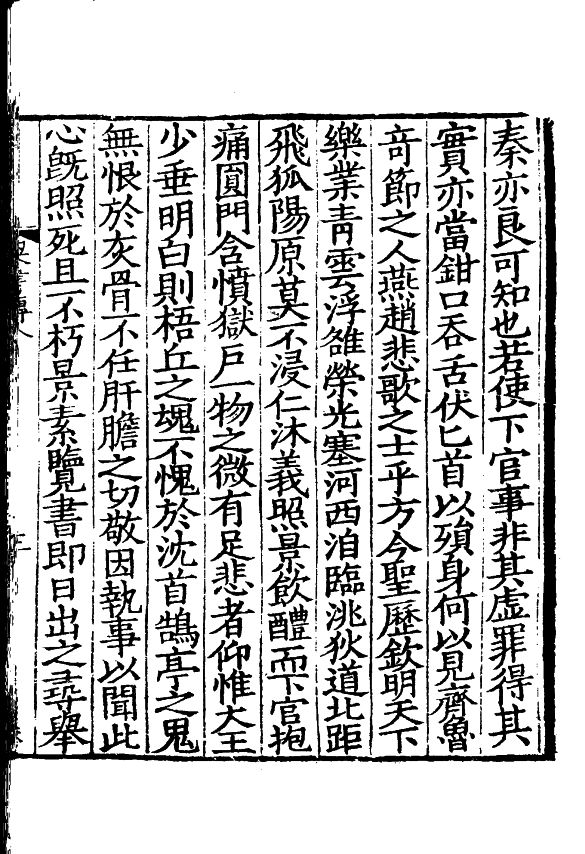 秦亦良可知也若使下官事非其虛罪得其
實亦當鉗口吞舌伏匕首以殞身何以見齊魯
奇節之人燕趙悲歌之士乎方今聖歷欽明天下
樂業青雲浮雒榮光塞河西泊臨洮狄道北距
飛狐陽原莫不浸仁沐義照景飲醴而下官抱
痛圓門含憤獄戶一物之微有足悲者仰惟大王
少垂明白則梧丘之塊不愧於沈首鵠亭之鬼
無恨於灰骨不任肝膽之切敬因執事以聞此
心旣照死且不朽景素覽書即日出之尋舉